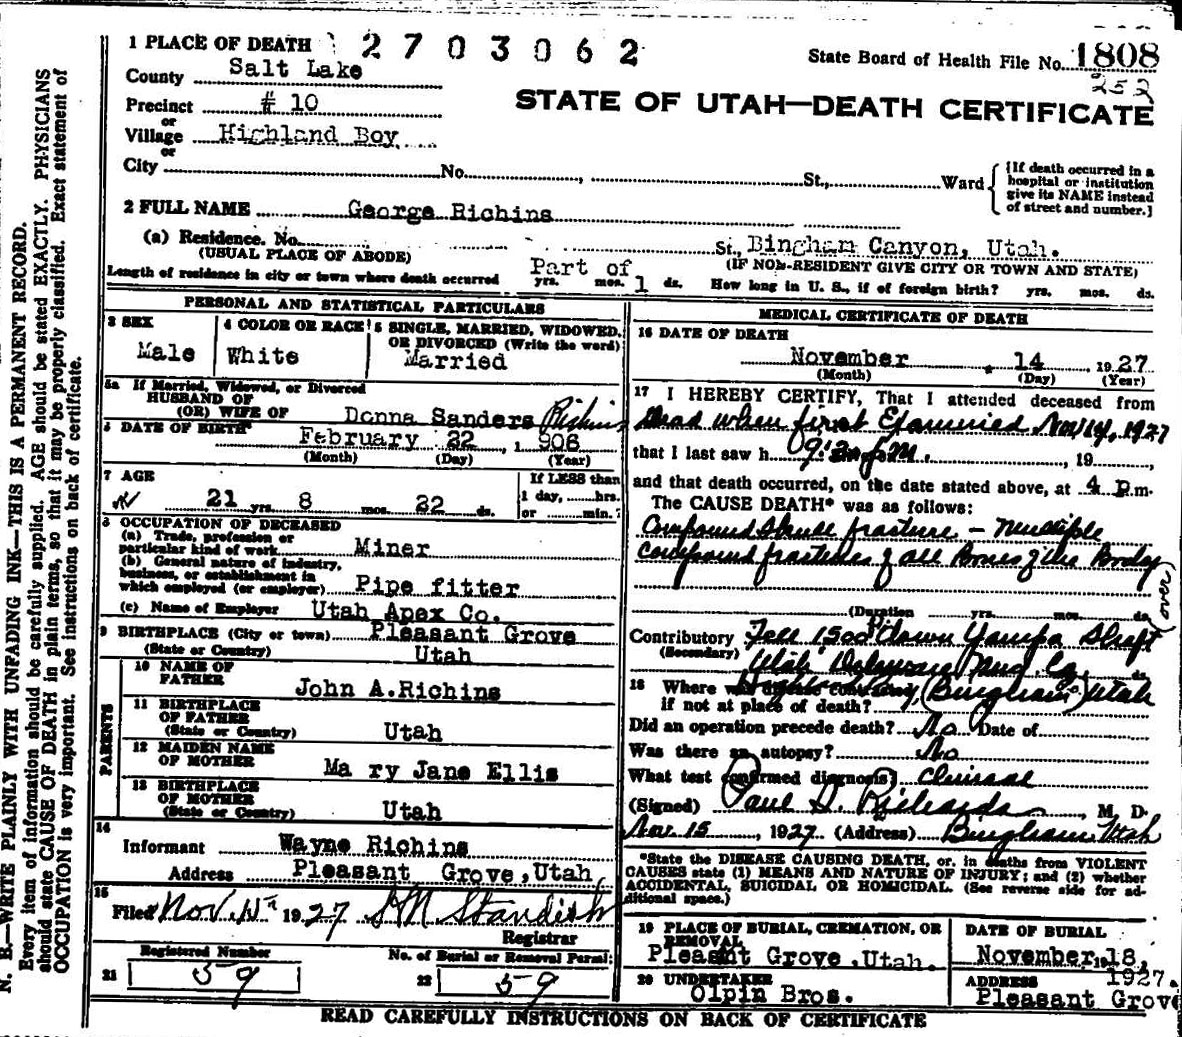 1 PLACE OF DEATH 2703062
State Board of Health File No. 1808
252
County Salt Lake
STATE OF UTAH—DEATH CERTIFICATE
Precinct # 10
or
Village Highland Boy
or
City No. St., Ward {If death occurred in a hospital or institution give its NAME instead of street and number.}
2 FULL NAME George Richins
(a) Residence. No. St., Bingham Canyon, Utah.
(USUAL PLACE OF ABODE) (IF NON-RESIDENT GIVE CITY OR TOWN AND STATE)
Length of residence in city or town where death occurred Part of yrs. mos. 1 ds. How long in U. S., if of foreign birth? yrs. mos. ds.
PERSONAL AND STATISTICAL PARTICULARS
3 SEX Male
4 COLOR OR RACE White
5 SINGLE, MARRIED, WIDOWED, OR DIVORCED (Write the word) Married
5a If Married, Widowed, or Divorced
HUSBAND OF
(OR) WIFE OF Donna Sanders Richins
6 DATE OF BIRTH February 22, 1906
(Month) (Day) (Year)
7 AGE 21 yrs. 8 mos. 22 ds.
If LESS than 1 day, hrs. or min.
8 OCCUPATION OF DECEASED
(a) Trade, profession or particular kind of work Miner
(b) General nature of industry, business, or establishment in which employed (or employer) Pipe fitter
(c) Name of Employer Utah Apex Co.
9 BIRTHPLACE (City or town) Pleasant Grove
(State or Country) Utah
PARENTS
10 NAME OF FATHER John A.Richins
11 BIRTHPLACE OF FATHER (State or Country) Utah
12 MAIDEN NAME OF MOTHER Mary Jane Ellis
13 BIRTHPLACE OF MOTHER (State or Country) Utah
14
Informant Wayne Richins
Address Pleasant Grove,Utah
15
Filed Nov. 1927
Registrar
Registered Number
21 59
No. of Burial or Removal Permit:
22 59
MEDICAL CERTIFICATE OF DEATH
16 DATE OF DEATH
November 14, 1927
(Month) (Day) (Year)
17 I HEREBY CERTIFY, That I attended deceased from
Dead when first Examined Nov 14, 1927
that I last saw h 9:30 P.M. , 19 ,
and that death occurred, on the date stated above, at 4 P.m.
The CAUSE DEATH* was as follows:
Compound Skull fracture — Multiple
compound fractures of all Bones of the Body
(over)
(Duration yrs. mos. ds.
Contributory Fell 1500 ft down Yampa Shaft
(Secondary) Utah Delaware Mng. Co.
18 Where was disease contracted, (Bingham) Utah
if not at place of death?
Did an operation precede death? No Date of
Was there an autopsy? No
What test confirmed diagnosis? Clinical
(Signed) Paul S. Richards M. D.
Nov 15, 1927. (Address) Bingham Utah
*State the DISEASE CAUSING DEATH, or, in deaths from VIOLENT
CAUSES state (1) MEANS AND NATURE OF INJURY; and (2) whether
ACCIDENTAL, SUICIDAL OR HOMICIDAL. (See reverse side for ad-
ditional space.)
19 PLACE OF BURIAL, CREMATION, OR REMOVAL
Pleasant Grove,Utah.
DATE OF BURIAL
November 18, 1927.
20 UNDERTAKER
Olpin Bros.
ADDRESS
Pleasant Grove
READ CAREFULLY INSTRUCTIONS ON BACK OF CERTIFICATE
N. B.—WRITE PLAINLY WITH UNFADING INK—THIS IS A PERMANENT RECORD.
Every item of information should be carefully supplied. AGE should be stated EXACTLY. PHYSICIANS
should state CAUSE OF DEATH in plain terms, so that it may be properly classified. Exact statement of
OCCUPATION is very important. See instructions on back of certificate.